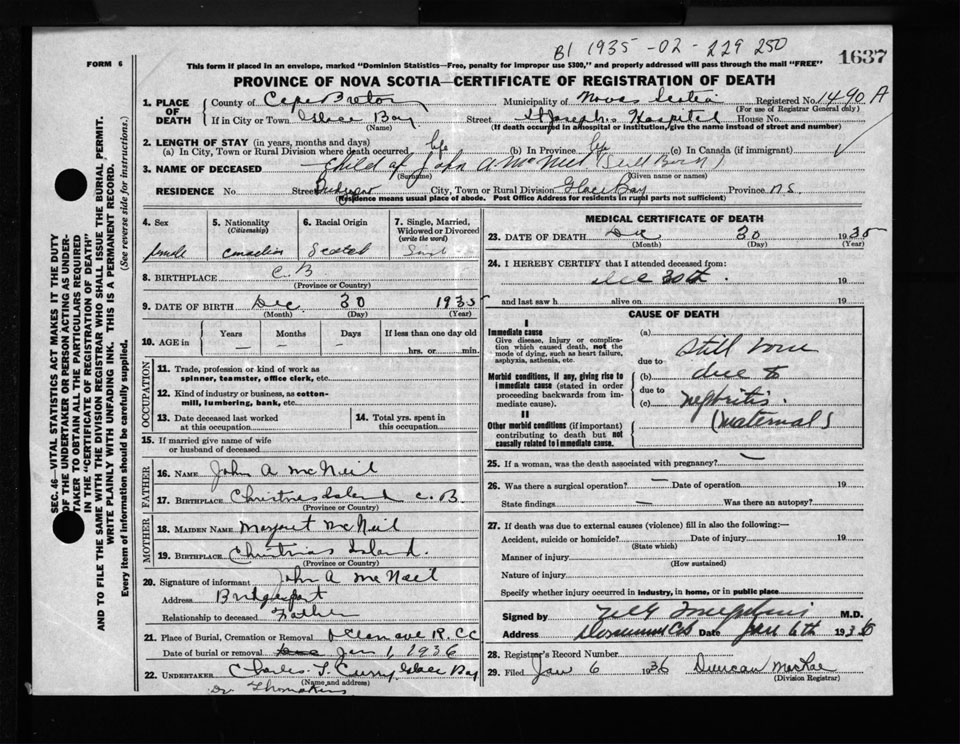 B1 1935-02-229 250
1637
FORM 6
This form if placed in an envelope, marked "Dominion Statistics—Free, penalty for improper use $300," and properly addressed will pass through the mail "FREE"
PROVINCE OF NOVA SCOTIA—CERTIFICATE OF REGISTRATION OF DEATH
SEC. 46—VITAL STATISTICS ACT MAKES IT THE DUTY
OF THE UNDERTAKER OR PERSON ACTING AS UNDER-
TAKER TO OBTAIN ALL THE PARTICULARS REQUIRED
IN THE "CERTIFICATE OF REGISTRATION OF DEATH"
AND TO FILE THE SAME WITH THE DIVISION REGISTRAR WHO SHALL ISSUE THE BURIAL PERMIT.
WRITE PLAINLY WITH UNFADING INK. THIS IS A PERMANENT RECORD.
Every item of information should be carefully supplied. (See reverse side for instructions.)
1. PLACE OF DEATH
County of Cape Breton Municipality of Nova Scotia Registered No. 1490 A
(For use of Registrar General only)
If in City or Town Glace Bay Street St Josephs Hospital House No.
(Name) (If death occurred in a hospital or institution, give the name instead of street and number)
2. LENGTH OF STAY (in years, months and days)
(a) In City, Town or Rural Division where death occurred life (b) In Province life (c) In Canada (if immigrant)
3. NAME OF DECEASED Child of John A McNeil (Still Born)
(Surname) (Given name or names)
RESIDENCE No Street City, Town or Rural Division Glace Bay Province N.S.
(Residence means usual place of abode. Post Office Address for residents in rural parts not sufficient)
4. Sex 5. Nationality (Citizenship) 6. Racial Origin 7. Single, Married, Widowed or Divorced (write the word)
female Canadian Scotch Singl
8. BIRTHPLACE C.B
(Province or Country)
9. DATE OF BIRTH Dec 30 1935
(Month) (Day) (Year)
10. AGE in Years Months Days If less than one day old
— — — hrs. or min.
OCCUPATION
11. Trade, profession or kind of work as
spinner, teamster, office clerk, etc.
12. Kind of industry or business, as cotton-
mill, lumbering, bank, etc.
13. Date deceased last worked
at this occupation
14. Total yrs. spent in
this occupation
15. If married give name of wife
or husband of deceased
FATHER
16. NAME John A McNeil
17. BIRTHPLACE Christmas Island C.B.
(Province or Country)
MOTHER
18. MAIDEN NAME Margaret McNeil
19. BIRTHPLACE Christmas Island.
(Province or Country)
20. Signature of informant John A McNeil
Address Bridgeport
Relationship to deceased Father
21. Place of Burial, Cremation or Removal R.C.C
Date of burial or removal Jan 1, 1936
22. UNDERTAKER Charles J. Curry, Glace Bay
(Name and address)
MEDICAL CERTIFICATE OF DEATH
23. DATE OF DEATH Dec 30 1935
(Month) (Day) (Year)
24. I HEREBY CERTIFY that I attended deceased from:
Dec 30th. 19
and last saw h alive on 19
CAUSE OF DEATH
I
Immediate cause
Give disease, injury or complica-
tion which caused death, not the
mode of dying, such as heart failure,
asphyxia, asthenia, etc.
Morbid conditions, if any, giving rise to
immediate cause (stated in order
proceeding backwards from im-
mediate cause).
II
Other morbid conditions (if important)
contributing to death but not
causally related to immediate cause.
(a) Still born
due to
(b) due to
due to
(c) nephritis.
(maternal)
25. If a woman, was the death associated with pregnancy? —
26. Was there a surgical operation? — Date of operation 19
State findings — Was there an autopsy?
27. If death was due to external causes (violence) fill in also the following:—
Accident, suicide or homicide? Date of injury 19
(State which)
Manner of injury
(How sustained)
Nature of injury
Specify whether injury occurred in industry, in home, or in public place
Signed by M.D.
Address Dominion C.B Date Jan 6th 1936
28. Registrar's Record Number
29. Filed Jan 6 1936 Duncan MacRae
(Division Registrar)